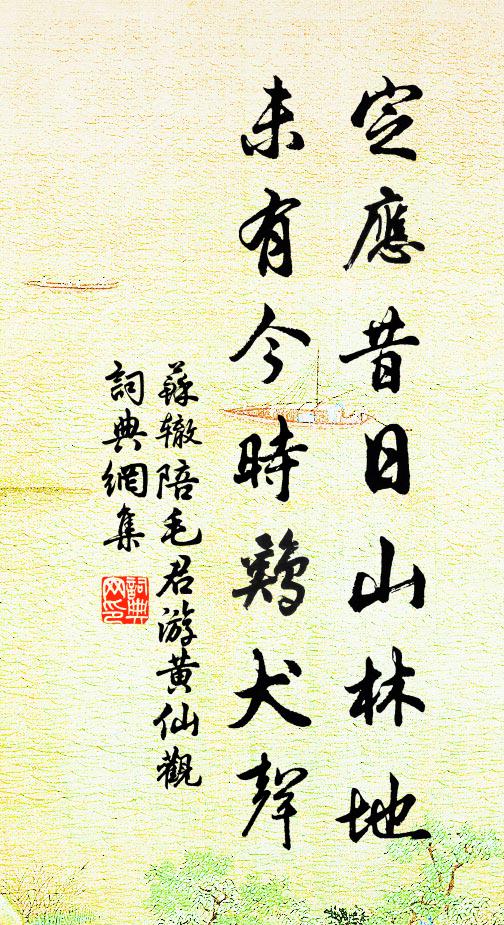 定應昔日山林地
未有今時鷄犬聲
蘇轍陪毛君游黄仙觀
詞典網集
詞典
网印